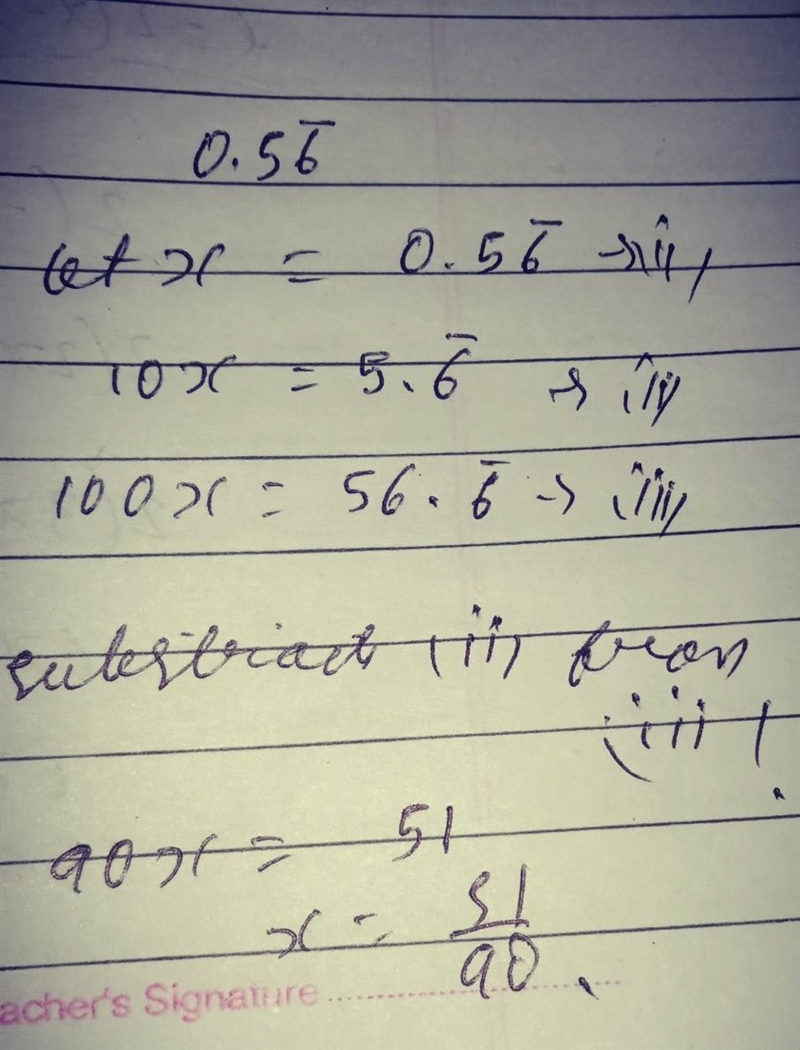 0.56̅
let x = 0.56̅ → (i)
10x = 5.6̅ → (ii)
100x = 56.6̅ → (iii)
substriact (ii) from
(iii)
90x = 51
x = 51/90.
acher's Signature